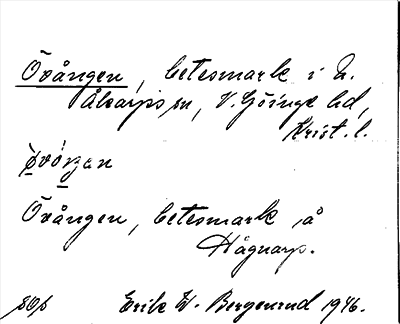 Övången, betesmark i N.
Åkarps sn, V. Göinge hd,
Krist. l.
Övången, betesmark å
Hågnarp.
Erik W. Bergenrud 1946.